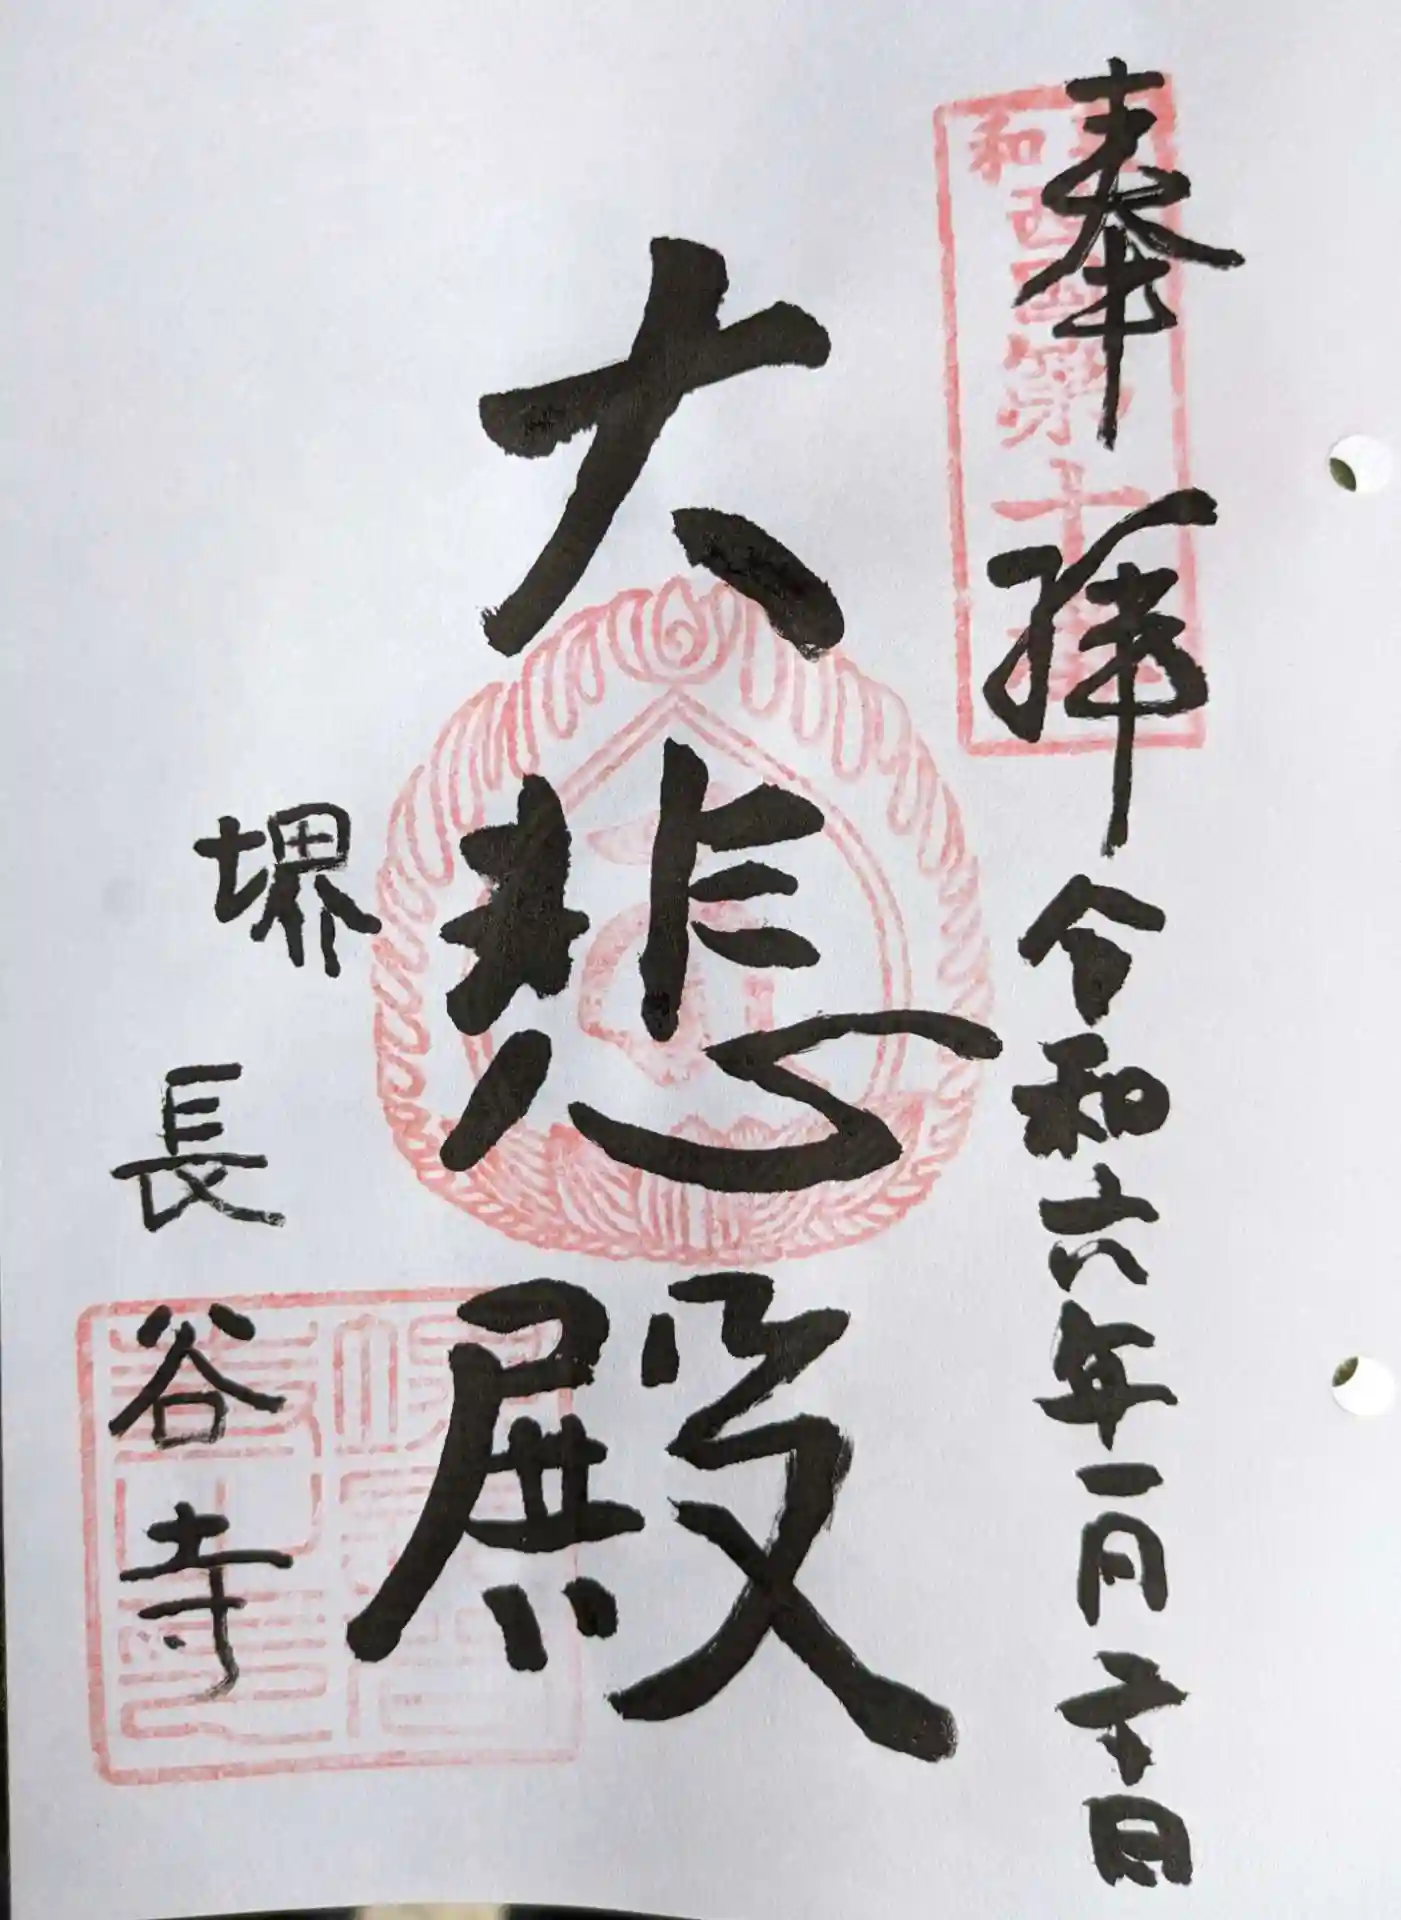 奉拝
令和六年一月二十日
和
西国第十
大悲殿
堺
長谷寺